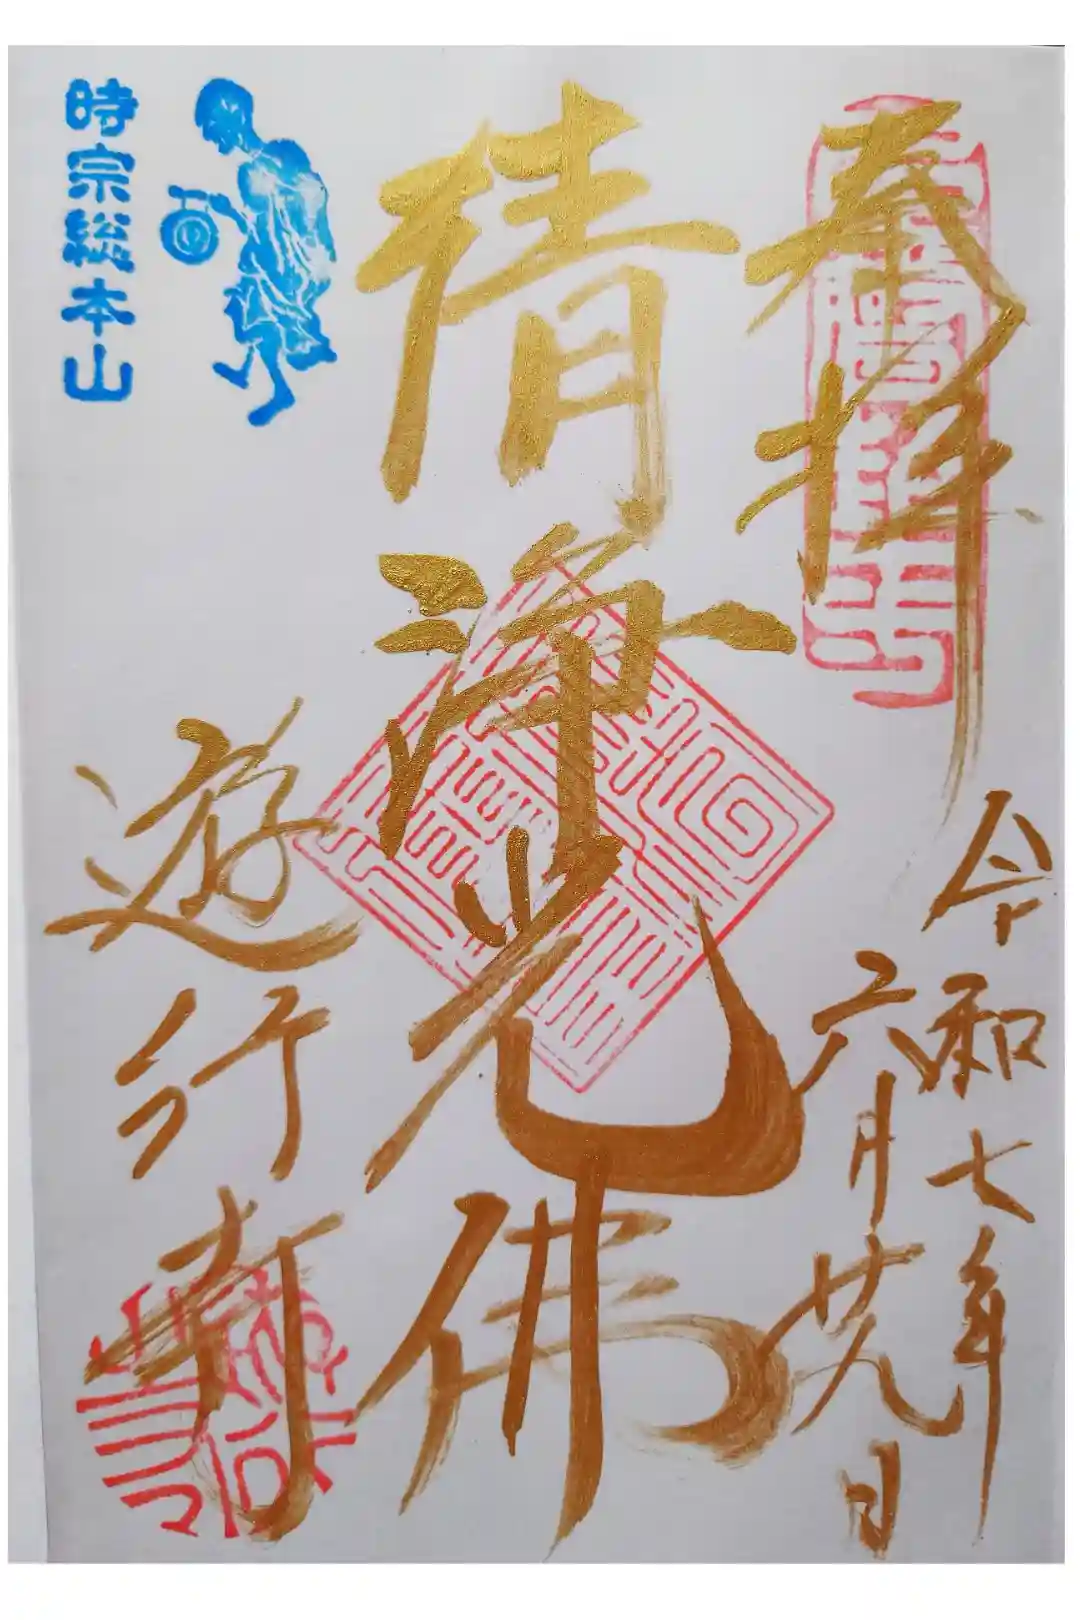 奉拝
令和七年
六月廿九日
清浄光佛
時宗総本山
遊行寺